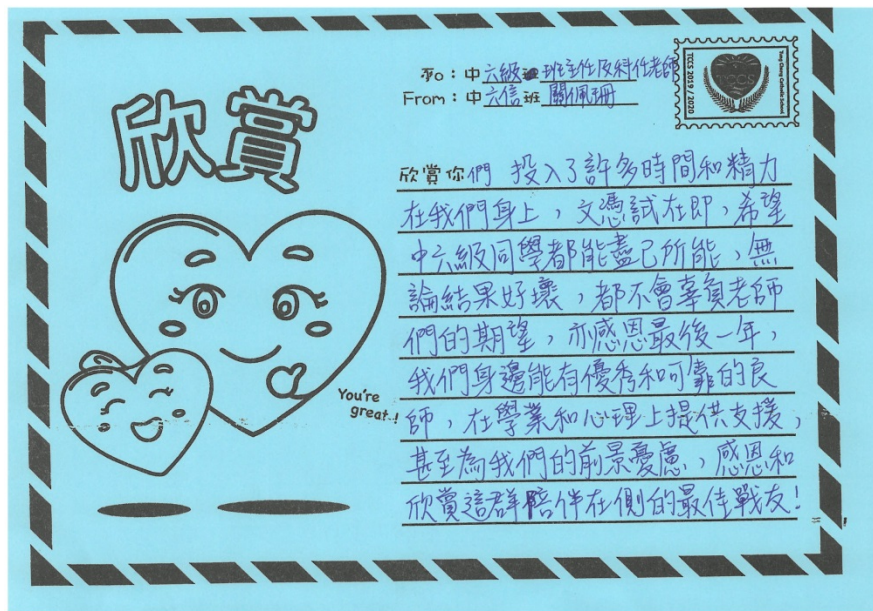 To：中六級班主任及科任老師
From：中六信班 關佩珊
TCCS
Tung Chung Catholic School
TCCS 2019 / 2020
欣賞
欣賞你們 投入了許多時間和精力
在我們身上，文憑試在即，希望
中六級同學都能盡己所能，無
論結果好壞，都不會辜負老師
們的期望，亦感恩最後一年，
我們身邊能有優秀和可靠的良
師，在學業和心理上提供支援，
甚至為我們的前景憂慮，感恩和
欣賞這群陪伴在側的最佳戰友！
You're
great!